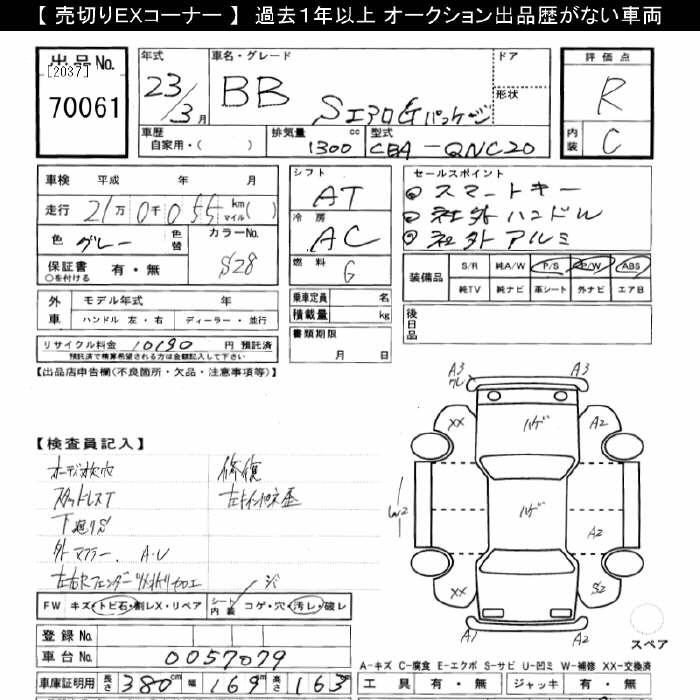 【 売切りEXコーナー 】 過去１年以上 オークション出品歴がない車両
出品No.
[2037]
70061
年式
23/3月
車名・グレード
BB
SエアロGパッケージ
ドア
形状
評価点
R
内装
C
車歴
自家用・( )
排気量
1300cc
型式
CBA-QNC20
車検 平成 年 月
走行 21万0千055 km マイル( )
色 グレー 色替
カラーNo.
S28
保証書 有・無
○を付ける
シフト
AT
冷房
AC
燃料
G
セールスポイント
スマートキー
社外ハンドル
社外アルミ
装備品 S/R 純A/W P/S P/W ABS
純TV 純ナビ 革シート 外ナビ エアB
外車 モデル年式 年
ハンドル 左・右 ディーラー・並行
乗車定員 名
積載量 kg
後日品
リサイクル料金 10190 円 預託済
預託済で精算希望される方は金額記入して下さい
書類期限
月 日
【出品店申告欄(不良箇所・欠品・注意事項等)】
【検査員記入】
オーデオ欠
スタッドレスT
下廻りS
外マフラー. A・U
修復
A3
A3
XX
ハゲ
A2
ハゲ
A2
XX
S2
A1
A2
FW キズ・トビ石・割レX・リペア
シート内装 コゲ・穴・汚レ・破レ
登録No.
車台No. 0057079
スペア
A-キズ C-腐食 E-エクボ S-サビ U-凹ミ W-補修 XX-交換済
車庫証明用 長さ 380cm 幅 169cm 高さ 163cm
工具 有・無 ジャッキ 有・無